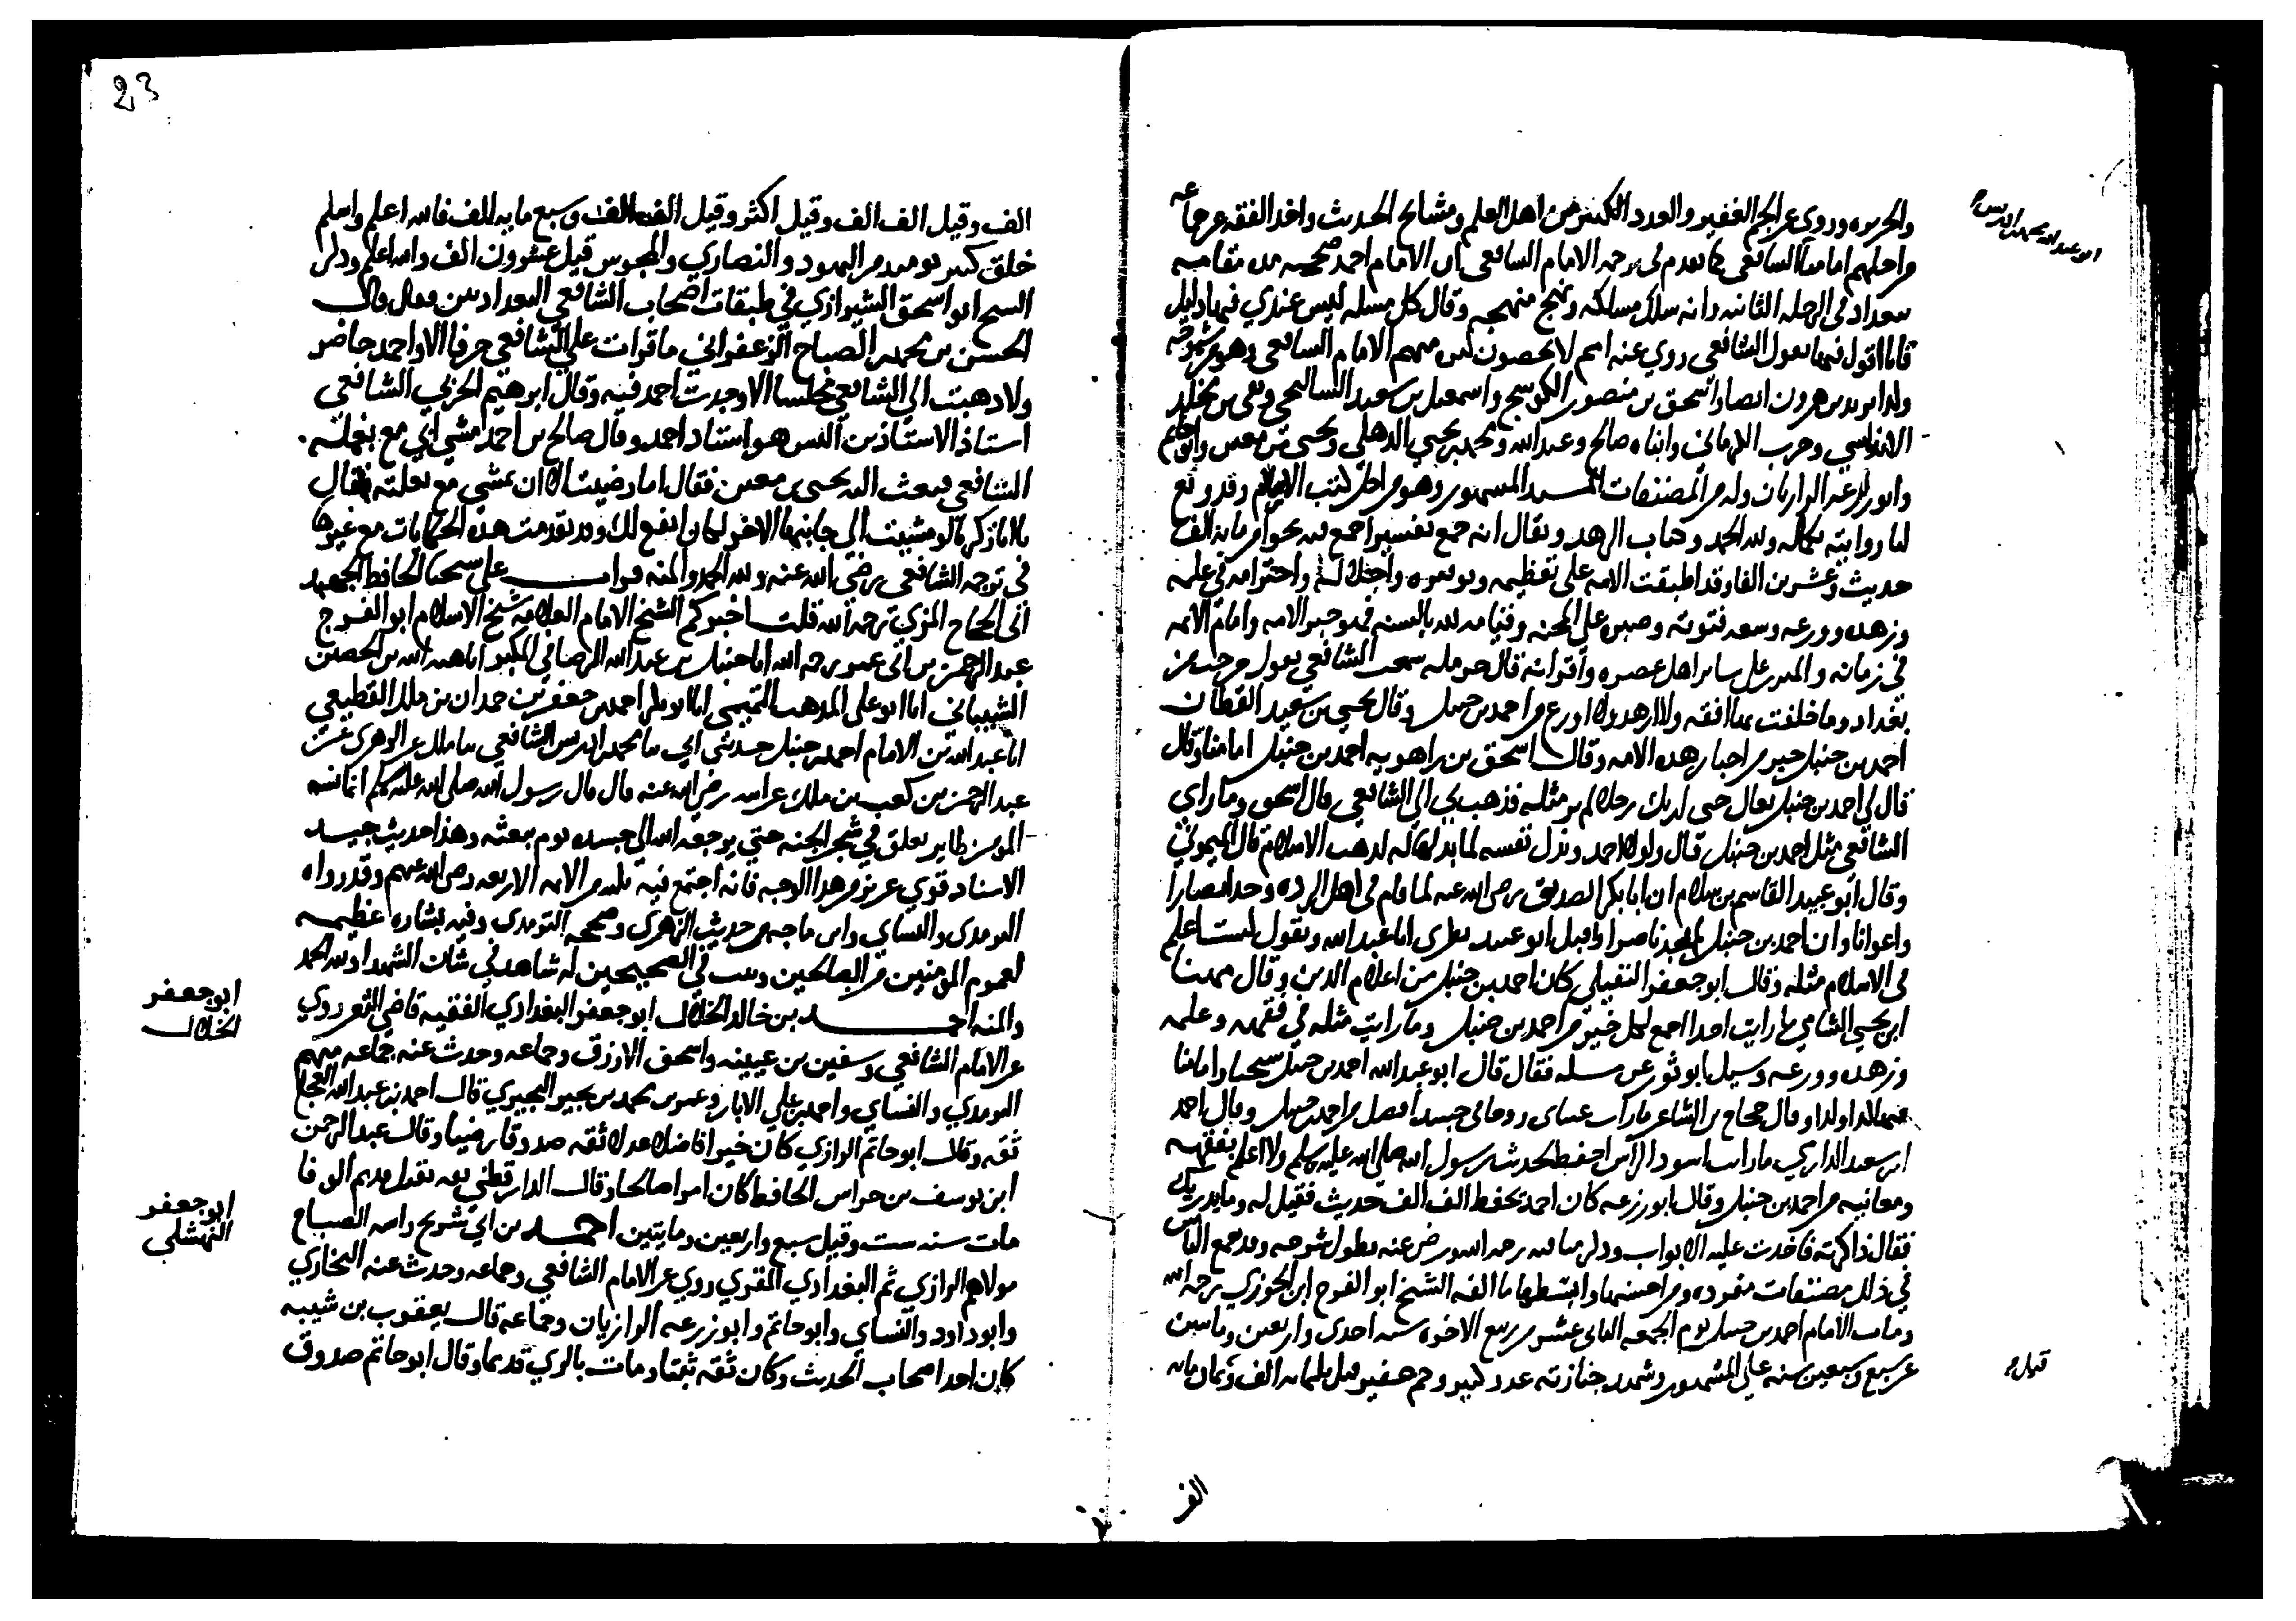 والجزيره وروى عن الجم الغفير والعدد الكثير من اهل العلم ومشايخ الحديث واخذ الفقه عن جماعه
من اجلهم امامنا الشافعي كما تقدم في ترجمه الامام الشافعي ان الامام احمد صحبه مده مقامه
ببغداد في الرحله الثانيه وانه سلك مسلكه ونهج منهجه وقال كل مسله ليس عندي فيها دليل
فانا اقول فيها بقول الشافعي روى عنه امم لا يحصون كثره منهم الامام الشافعي وهو من شيوخه
وكذا يزيد بن هرون ايضا واسحق بن منصور الكوسج واسمعيل بن سعيد السالنجي وبقي بن مخلد
الاندلسي وحرب الكرماني وابناه صالح وعبد الله ومحمد بن يحيى الذهلي ويحيى بن معين وابو حاتم
وابو زرعه الرازيان وله من المصنفات المسند المشهور وهو من اجل كتب الاسلام وقد وقع
لنا روايته بكماله ولله الحمد وكتاب الزهد ويقال انه جمع تفسيرا جمع فيه نحوا من مايه الف
حديث وعشرين الفا وقد اطبقت الامه على تعظيمه وتوقيره واجلاله واحترامه في علمه
وزهده وورعه وسعه فتوته وصبره على المحنه وقيامه لله بالسنه فهو حبر الامه وامام الايمه
في زمانه والمبرز على ساير اهل عصره واقرانه قال حرمله سمعت الشافعي يقول خرجت من
بغداد وما خلفت بها افقه ولا ازهد ولا اورع من احمد بن حنبل وقال يحيى بن سعيد القطان
احمد بن حنبل حبر من احبار هذه الامه وقال اسحق بن راهويه احمد بن حنبل امامنا وقال
قال لي احمد بن حنبل تعال حتى اريك رجلا لم تر مثله فذهب بي الى الشافعي قال اسحق وما راى
الشافعي مثل احمد بن حنبل قال ولولا احمد وبذل نفسه لما بذلها له لذهب الاسلام قال الميموني
وقال ابو عبيد القاسم بن سلام ان ابا بكر الصديق رضي الله عنه لما قام في اهل الرده وجد انصارا
واعوانا وان احمد بن حنبل لم يجد ناصرا واقبل ابو عبيد يطري ابا عبد الله ويقول لست اعلم
في الاسلام مثله وقال ابو جعفر النفيلي كان احمد بن حنبل من اعلام الدين وقال مهنا
ابن يحيى الشامي ما رايت احدا اجمع لكل خير من احمد بن حنبل وما رايت مثله في فقهه وعلمه
وزهده وورعه وسيل ابو ثور عن مسله فقال قال ابو عبد الله احمد بن حنبل شيخنا وامامنا
فيها كذا وكذا وقال حجاج بن الشاعر ما رات عيناي روحا في جسد افضل من احمد بن حنبل وقال احمد
ابن سعيد الدارمي ما رايت اسود الراس احفظ لحديث رسول الله صلى الله عليه وسلم ولا اعلم بفقهه
ومعانيه من احمد بن حنبل وقال ابو زرعه كان احمد يحفظ الف الف حديث فقيل له وما يدريك
فقال ذاكرته فاخذت عليه الابواب وذكر مناقبه رحمه الله ورضي عنه يطول شرحه وقد جمع الناس
في ذلك مصنفات مفرده ومن احسنها وابسطها ما الفه الشيخ ابو الفرج ابن الجوزي رحمه الله
ومات الامام احمد بن حنبل يوم الجمعه الثاني عشر من ربيع الاخره سنه احدى واربعين ومايتين
عن سبع وسبعين سنه على المشهور وشهد جنازته عدد كثير وجم غفير قيل ثلثمايه الف وثمان مايه
الف
23
الف وقيل الف الف وقيل اكثر وقيل الف الف وسبع مايه الف فالله اعلم واسلم
خلق كثير يوميد من اليهود والنصارى والمجوس قيل عشرون الف والله اعلم وذكر
الشيخ ابو اسحق الشيرازي في طبقات اصحاب الشافعي البغداديين وقال وقال
الحسن بن محمد الصباح الزعفراني ما قرات على الشافعي حرفا الا واحمد حاضر
ولا ذهبت الى الشافعي مجلسا الا وجدت احمد فيه وقال ابرهيم الحربي الشافعي
استاذ الاستاذين اليس هو استاد احمد وقال صالح بن احمد مشى ابي مع بغله
الشافعي فبعث اليه يحيى بن معين فقال اما رضيت الا ان تمشي مع بغلته فقال
يا ابا زكريا لو مشيت الى جانبها الاخر لكان انفع لك وقد تقدمت هذه الحكايات مع غيرها
في ترجمه الشافعي رضي الله عنه ولله الحمد والمنه قرات على شيخنا الحافظ الجهبد
ابي الحجاج المزي رحمه الله قلت اخبركم الشيخ الامام العلامه شيخ الاسلام ابو الفرج
عبد الرحمن بن ابي عمر رحمه الله انا حنبل بن عبد الله الرصافي المكبر انا هبه الله بن الحصين
الشيباني انا ابو علي المذهب التميمي انا ابو بكر احمد بن جعفر بن حمدان بن ملك القطيعي
انا عبد الله بن الامام احمد بن حنبل حدثني ابي ثنا محمد بن ادريس الشافعي ثنا ملك عن الزهري عن
عبد الرحمن بن كعب بن ملك عن ابيه رضي الله عنه قال قال رسول الله صلى الله عليه وسلم انما نسمه
المومن طاير يعلق في شجر الجنه حتى يرجعه الله الى جسده يوم يبعثه وهذا حديث جيد
الاسناد قوي عزيز من هذا الوجه فانه اجتمع فيه ثلثه من الايمه الاربعه رضي الله عنهم وقد رواه
الترمذي والنساي وابن ماجه من حديث الزهري وصححه الترمذي وفيه بشاره عظيمه
لعموم المومنين من الصالحين وثبت في الصحيحين له شاهد في شان الشهدا ولله الحمد
والمنه احمد بن خالد الخلال ابو جعفر البغدادي الفقيه قاضي الثغر روى
عن الامام الشافعي وسفين بن عيينه واسحق الازرق وجماعه وحدث عنه جماعه منهم
الترمدي والنساي واحمد بن علي الابار وعمر بن محمد بن بجير البجيري قال احمد بن عبد الله العجلي
ثقه وقال ابو حاتم الرازي كان خيرا فاضلا عدلا ثقه صدوقا رضيا وقال عبد الرحمن
ابن يوسف بن خراش الحافظ كان امرا صالحا وقال الدارقطني ثقه نقيل قديم الوفا
مات سنه ست وقيل سبع واربعين ومايتين احمد بن ابي شريح واسمه الصباح
مولاهم الرازي ثم البغدادي المقري روى عن الامام الشافعي وجماعه وحدث عنه البخاري
وابو داود والنساي وابو حاتم وابو زرعه الرازيان وجماعه قال يعقوب بن شيبه
كان احد اصحاب الحديث وكان ثقه ثبتا ومات بالري قديما وقال ابو حاتم صدوق
ابو جعفر
الخلال
ابو جعفر
النهشلي